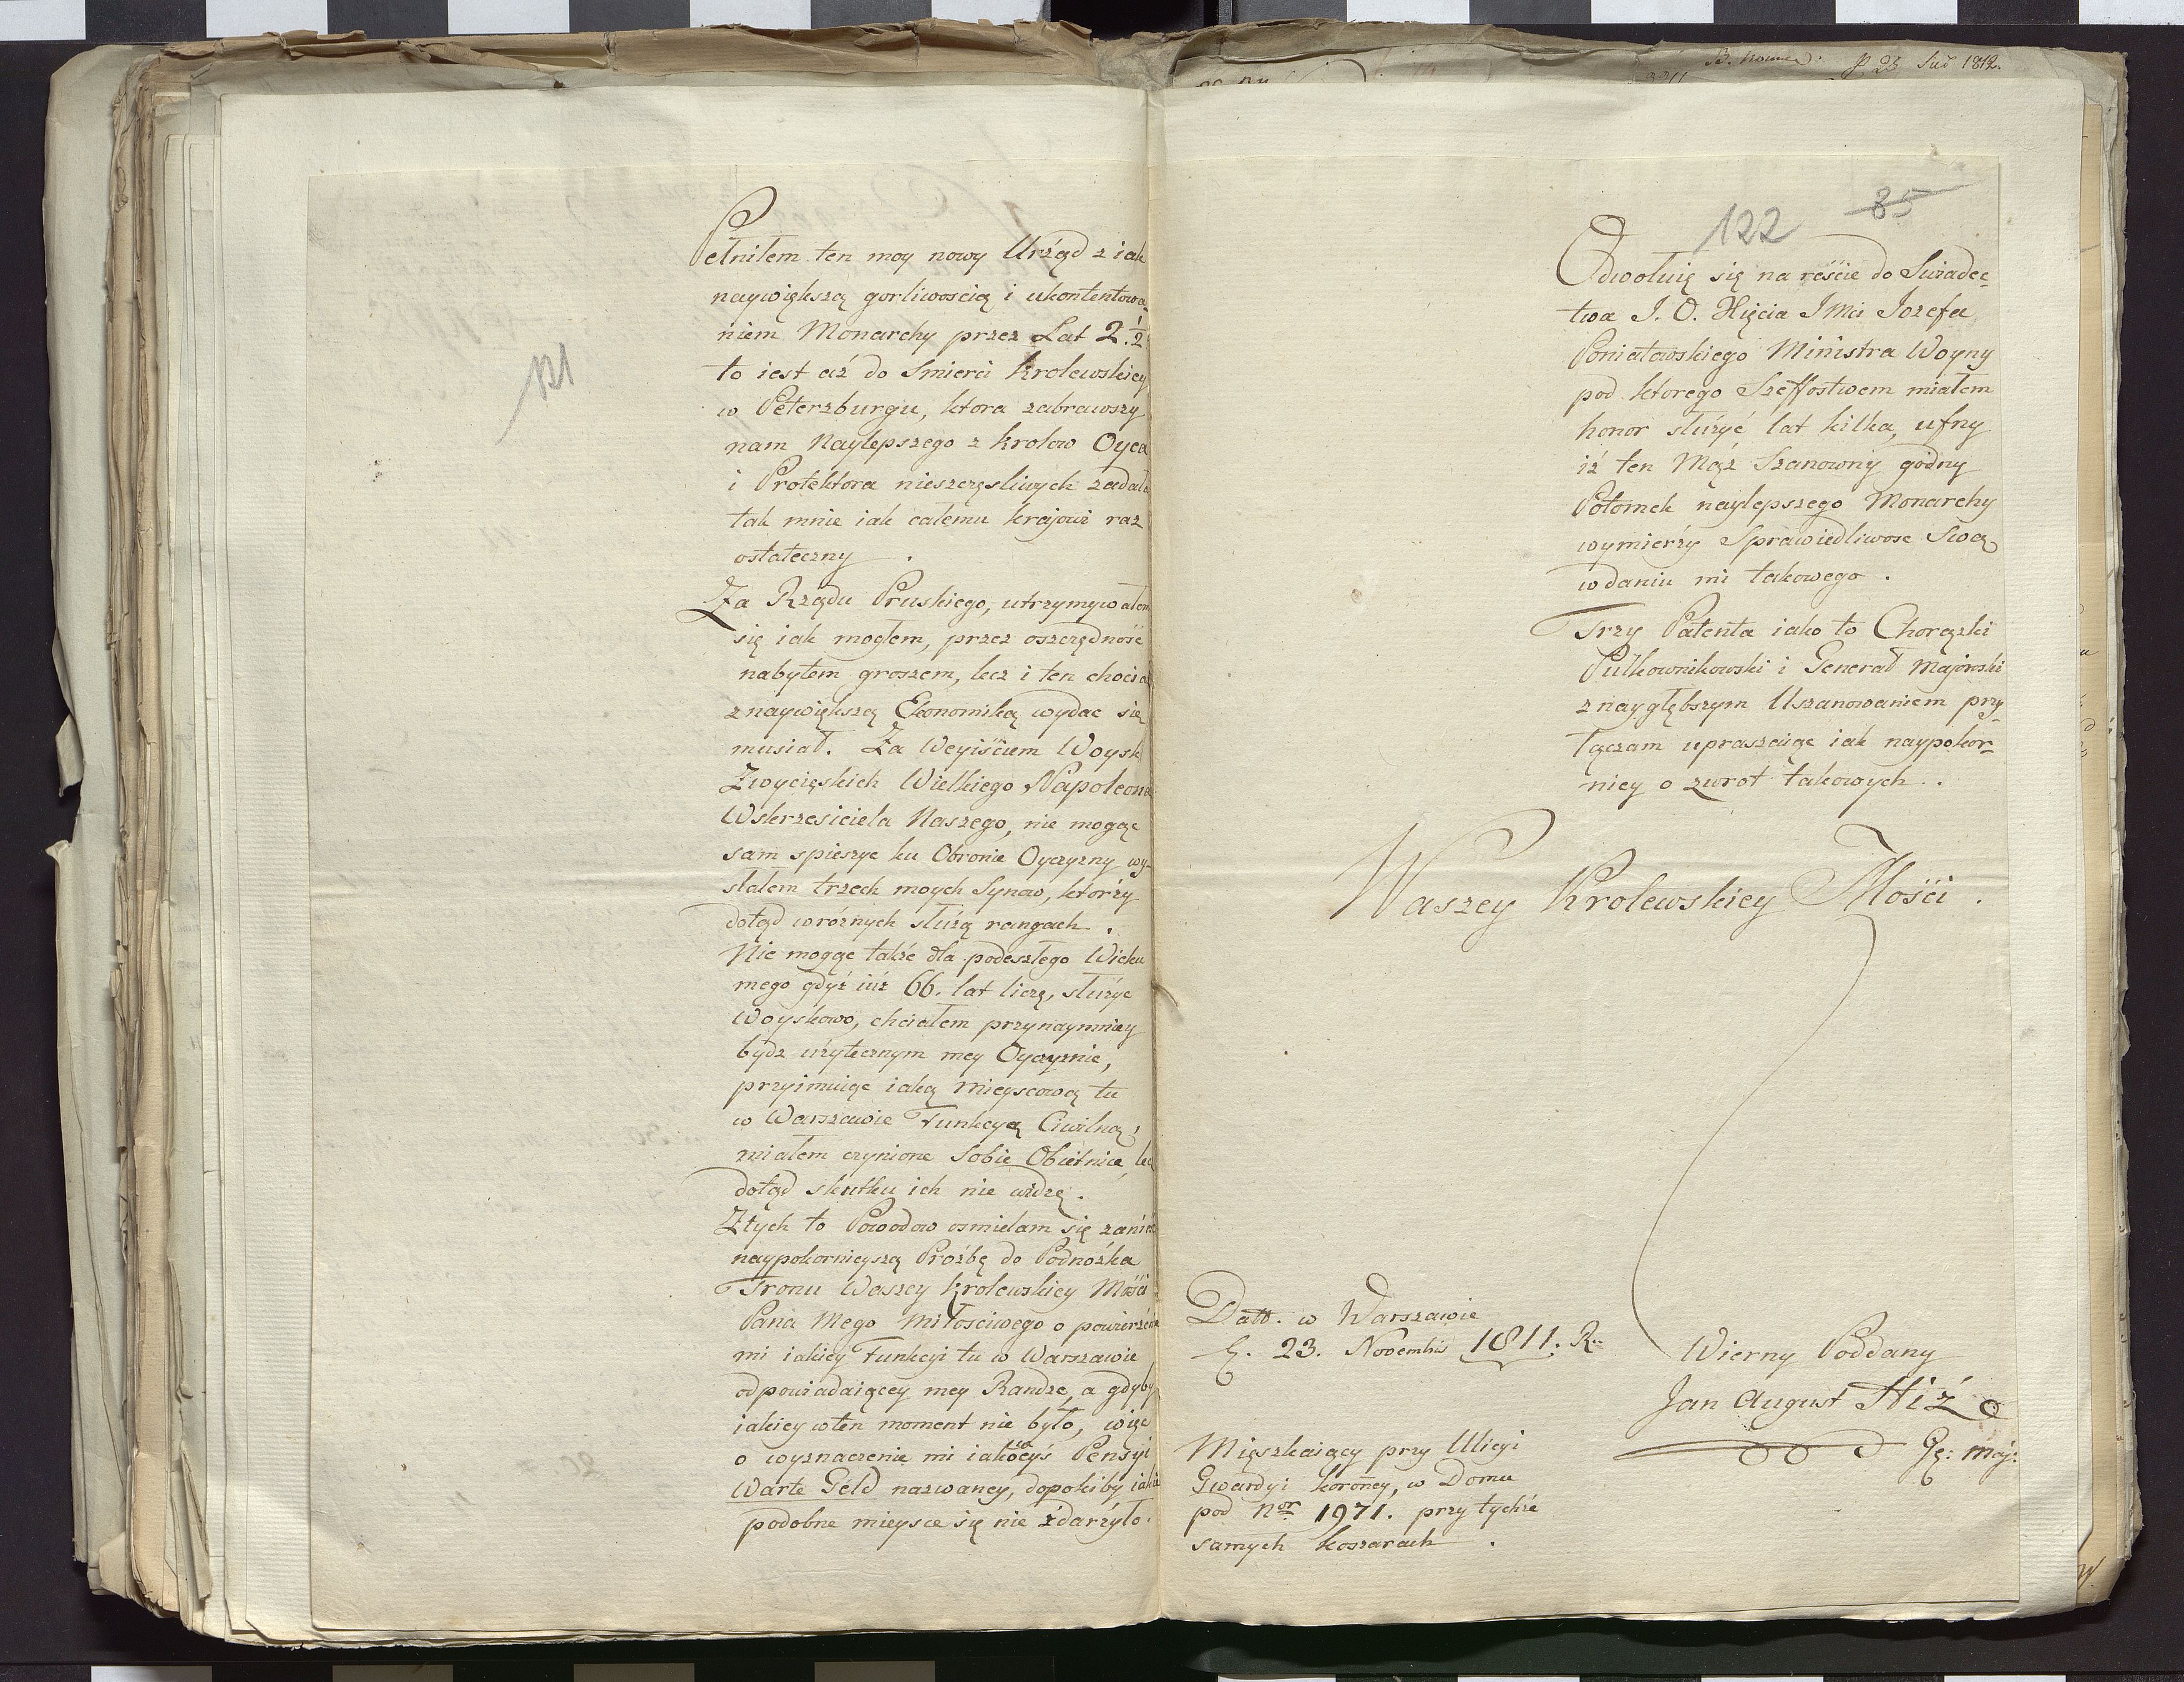 B. Nomina: p 23 Sud 1812.
121
Pełniłem ten moy nowy Urźąd z iak
naywiększą gorliwoscią i ukontentowa-
niem Monarchy przez Lat 2. 1/2
to iest aż do Smierci Krolewskiey
w Peterzburgu, ktora zabrawszy
nam Naylepszego z Krolow Oyca
i Protektora nieszczęsliwych zadała
tak mnie iak całemu krajowi raz
ostateczny .
Za Rządu Pruskiego, utrzymywałem
się iak mogłem, przez oszczędnośc
nabytem groszem, lecz i ten chociaż
z naywiększą Ekonomiką wydac się
musiał. Za Weyiściem Woysk
Zwycięskich Wielkiego Napoleona
Wskrzesiciela Naszego, nie mogąc
sam spieszyc ku Obronie Oyczyzny wy-
słałem trzech moych Synow, którzy
dotąd w róznych słuźą rangach .
Nie mogąc takźe dla podeszłego Wieku
mego gdyź iuź 66. lat liczę, słuźyc
Woyskowo, chciałem przynaymniey
bydz uźytecznym mey Oyczyznie,
przyimuiąc iaką mieyscową tu
w Warszawie Funkcyą Ciwilną,
miałem czynione Sobie Obietnice, lecz
dotąd skutku ich nie widzę .
Z tych to Powodow osmielam się zanieść
naypokornieyszą Proźbę do Podnoźka
Tronu Waszey Krolewskiey Mośći
Pana Mego Miłosciwego o powierzenie
mi iakiey Funkcyi tu w Warszawie
odpowiadaiącey mey Randze, a gdyby
iakiey w ten moment nie było, więc
o wyznaczenie mi iakoeyś Pensyi
Warte Geld nazwaney, dopokiby iakie
podobne mieysce się nie źdarźyło.
122 85
Odwołuię się na reście do Swiadec-
twa J. O. Xięcia JMci Jozefa
Poniatowskiego Ministra Woyny
pod ktorego Szeffostwem miałem
honor słuźyć lat kilka, ufny
iź ten Mąź Szanowny godny
Potomek naylepszego Monarchy
wymierźy Sprawiedliwosc Swą
w daniu mi takowego .
Trzy Patenta iako to Chorązki
Pułkownikowski i Generał Majorski
z naygłębszym Uszanowaniem przy-
łączam upraszaiąc iak naypokor-
niey o zwrot takowych .
Waszey Krolewskiey Mośći .
Datt. w Warszawie
d. 23. Novembris 1811. R.
Wierny Poddany
Jan August Hiż
Ge: Maj:
Mięszkaiący przy Ulicyi
Gwardyi Koronney, w Domu
pod Nor 1971. przy tychźe
samych Koszarach .